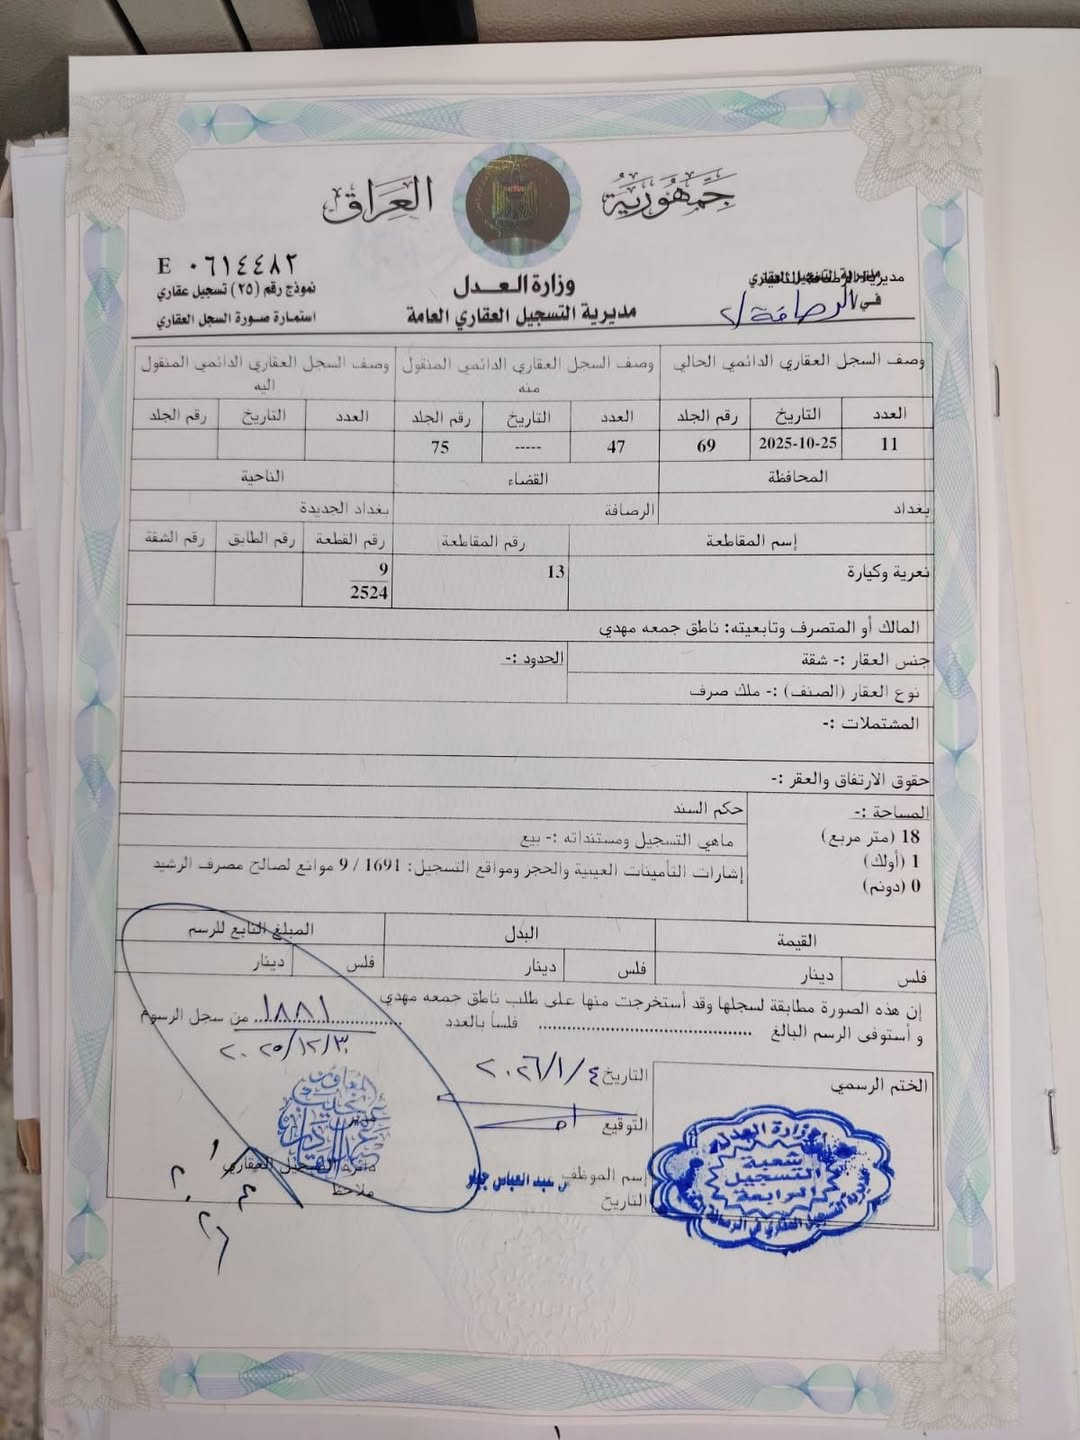 جمهورية العراق
E ٠٦١٤٤٨٢
نموذج رقم (٢٥) تسجيل عقاري
استمارة صورة السجل العقاري
وزارة العدل
مديرية التسجيل العقاري العامة
مديرية التسجيل العقاري
في الرصافة/٢
وصف السجل العقاري الدائمي الحالي
وصف السجل العقاري الدائمي المنقول منه
وصف السجل العقاري الدائمي المنقول اليه
العدد التاريخ رقم الجلد العدد التاريخ رقم الجلد العدد التاريخ رقم الجلد
11 2025-10-25 69 47 ----- 75
المحافظة القضاء الناحية
بغداد الرصافة بغداد الجديدة
إسم المقاطعة رقم المقاطعة رقم القطعة رقم الطابق رقم الشقة
نعرية وكيارة 13 9
2524
المالك أو المتصرف وتابعيته: ناطق جمعه مهدي
جنس العقار :- شقة الحدود :-
نوع العقار (الصنف) :- ملك صرف
المشتملات :-
حقوق الارتفاق والعقر :-
المساحة :-
18 (متر مربع)
1 (أولك)
0 (دونم)
حكم السند
ماهي التسجيل ومستنداته :- بيع
إشارات التأمينات العينية والحجر ومواقع التسجيل: 1691 / 9 موانع لصالح مصرف الرشيد
القيمة البدل المبلغ التابع للرسم
فلس دينار فلس دينار فلس دينار
إن هذه الصورة مطابقة لسجلها وقد أستخرجت منها على طلب ناطق جمعه مهدي
و أستوفى الرسم البالغ .......... فلساً بالعدد ١٨٨١ من سجل الرسوم
٢٠٢٥/١٢/٣٠
الختم الرسمي
التاريخ ٢٠٢٦/١/٤
التوقيع
إسم الموظف
التاريخ
دائرة التسجيل العقاري
ملاحظ
وزارة العدل
شعبة
التسجيل
الرابعة
١